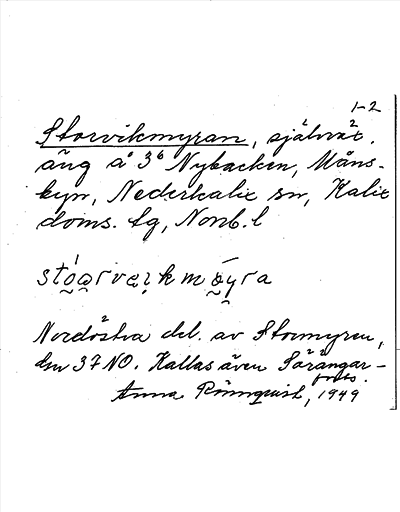 1-2
Storvikmyran, självät.
äng å 3⁶ Nybacken, Måns-
byn, Nederkalix sn, Kalix
doms. tg, Norrb. l
stóa̯rvei̯kmǿyra
Nordöstra del. av Stormyren,
den 37 NO. Kallas även Sörängar-
Anna Rönnquist, 1949